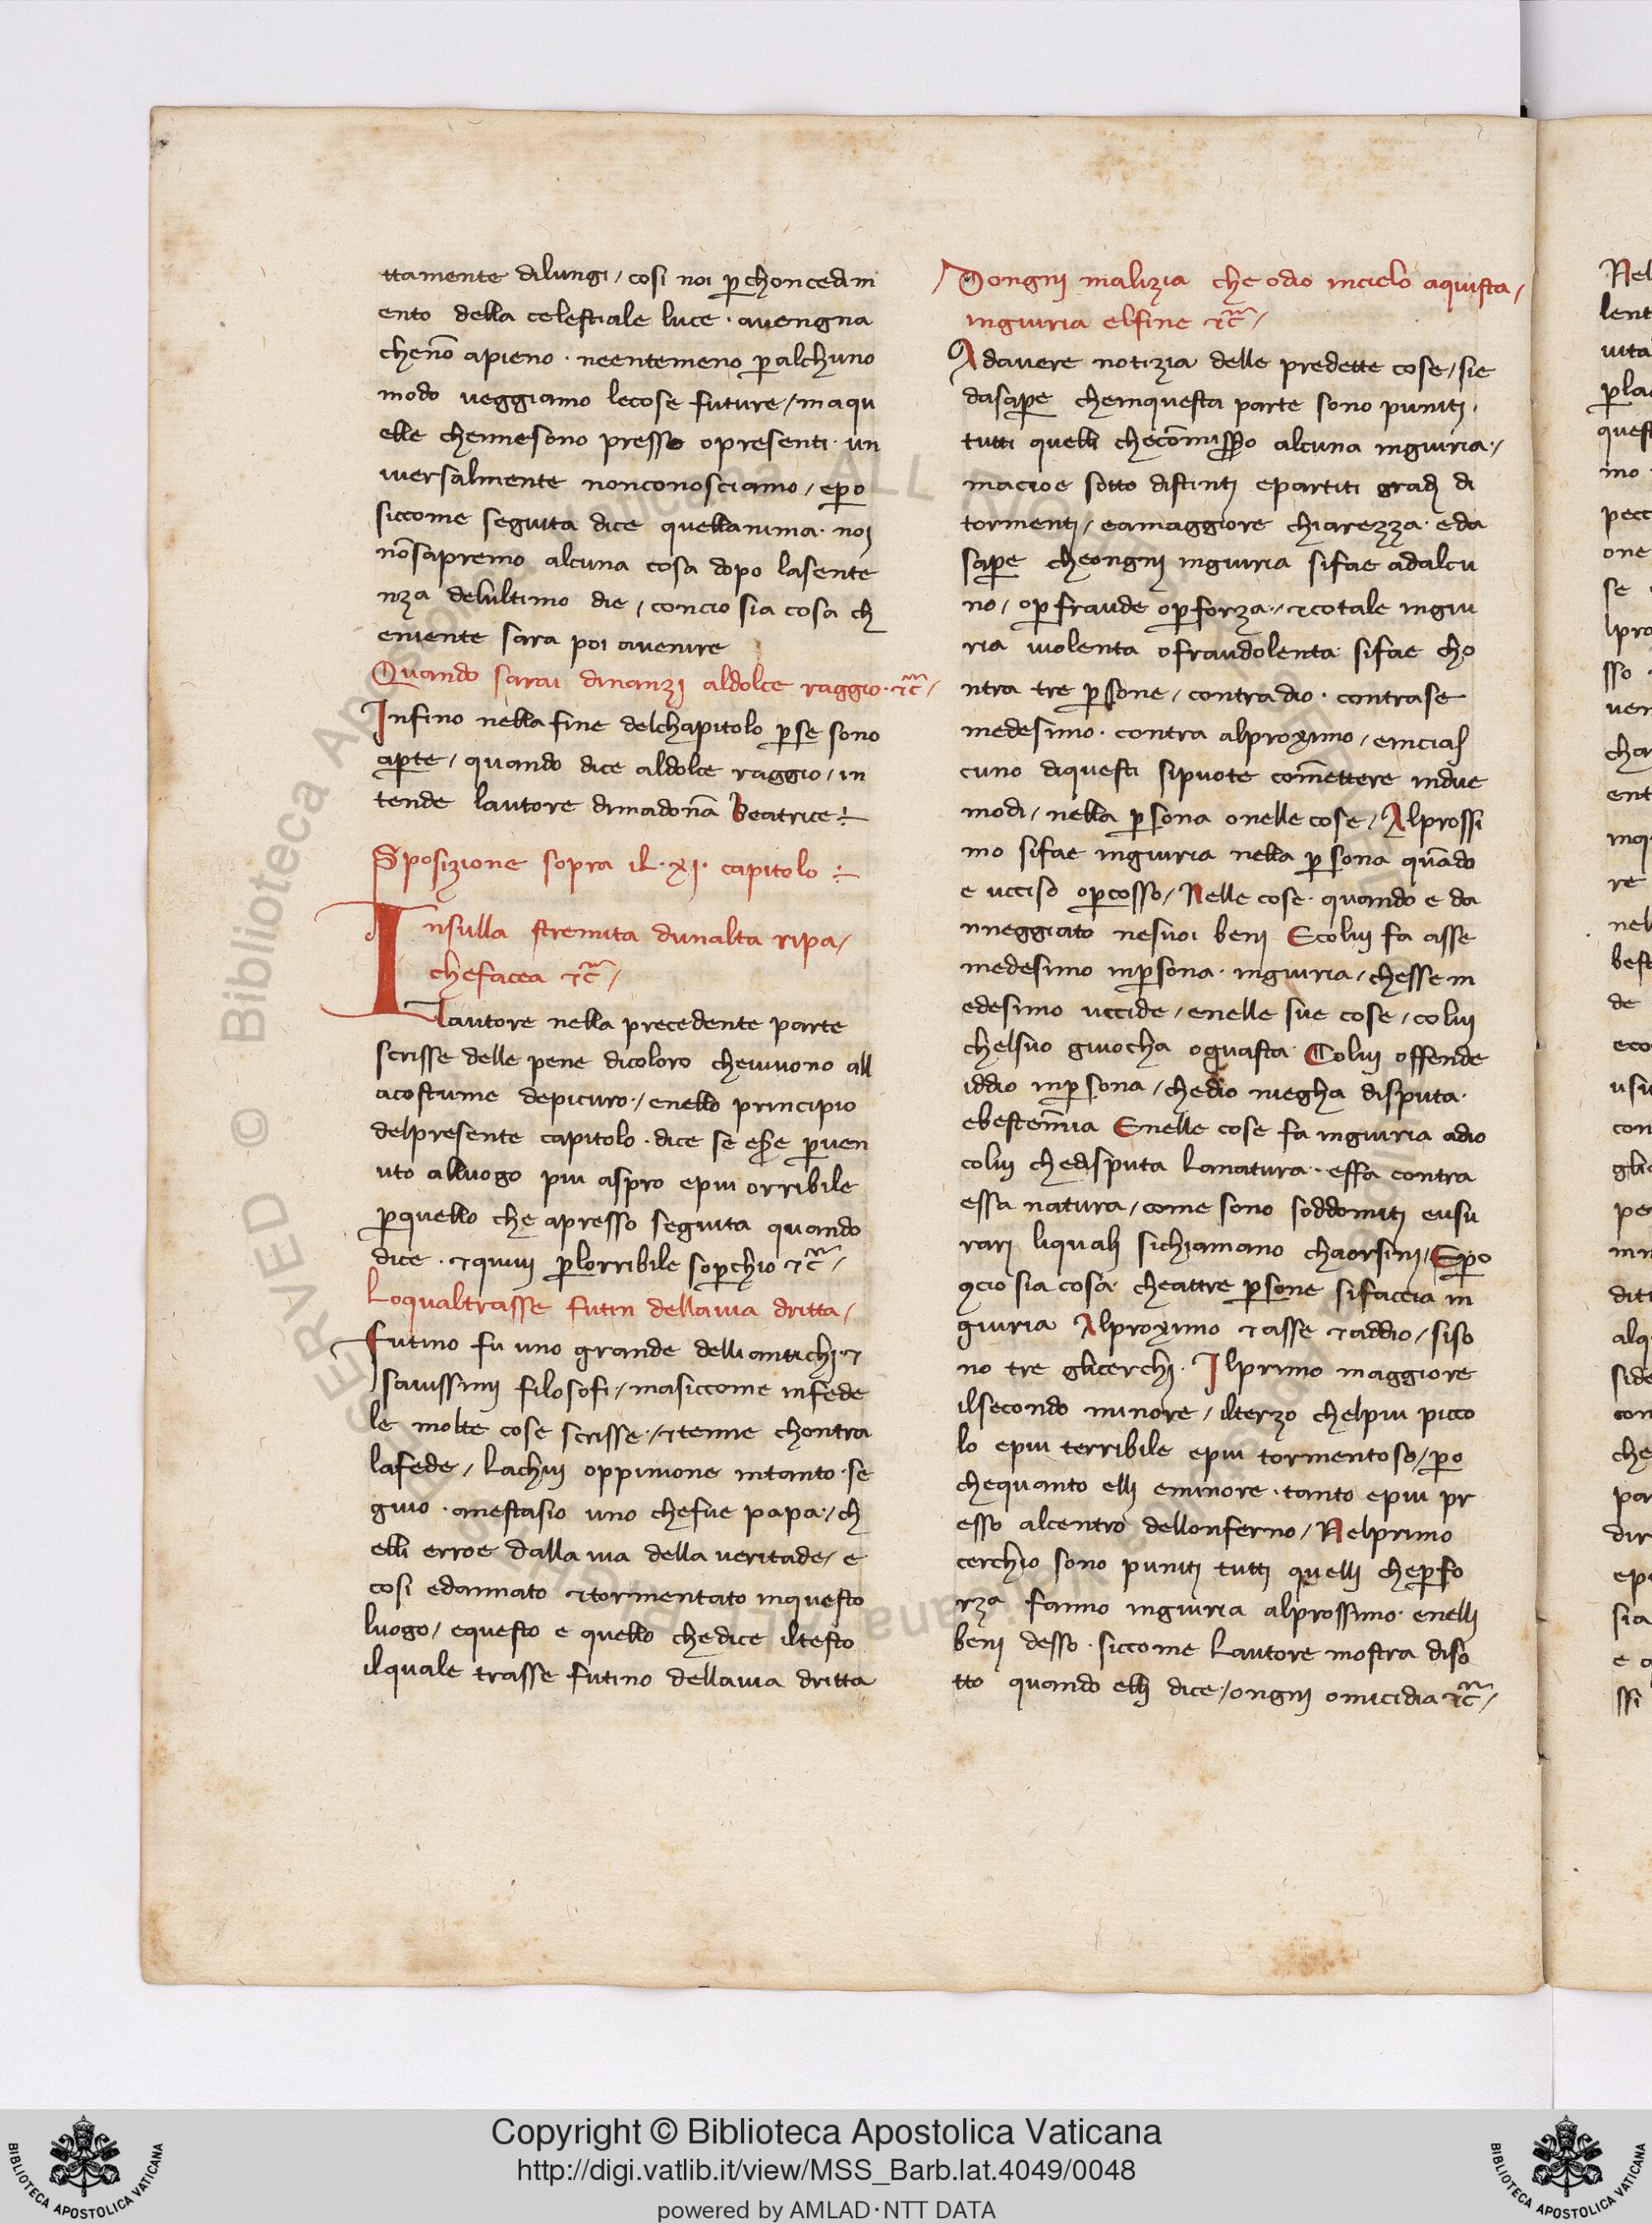 ttamente dilungi / cosi noi p chonced m
ento della celestiale luce · auengna
cheno apieno · neentemeno p alchuno
modo ueggiamo lecose future / maqu
elle chennesono presso opresenti · un
iuersalmente nonconosciamo / epo
siccome seguita dice quellanima · noi
nosapremo alcuna cosa dopo lasente
nza delultimo die / concio sia cosa ch
eniente sara poi auenire
Quando sarai dinanzi aldolce raggio · 7c /
Infino nella fine delchapitolo pse sono
apte / quando dice aldolce raggio / in
tende lautore dimadona Beatrice ÷
Sposizione sopra il · xj · capitolo ÷
Insulla stremita dunalta ripa /
chefacea 7c /
Lautore nella precedente parte
scrisse delle pene dicoloro cheuiuono all
acostume depicuro · / enello principio
delpresente capitolo · dice se esse puen
uto alluogo piu aspro epiu orribile
pquello che apresso seguita quando
dice · 7 quiui plorribile sopchio 7c /
Loqualtrasse futin dellauia dritta /
Futino fu uno grande delli antichi · 7
sauissimi filosofi / masiccome infede
le molte cose scrisse · / 7 tenne chontra
lafede / Lachui oppinione intanto · se
guio · anestasio uno chefue papa · / ch
elli erroe dalla uia della ueritade / e
cosi edannato 7 tormentato inquesto
luogo / equesto e quello chedice iltesto
ilquale trasse futino dellauia dritta
Dongni malizia che odio incielo aquista /
ingiuria elfine 7c /
Adauere notizia delle predette cose / sie
dasape cheinquesta parte sono puniti ·
tutti quelli checomisso alcuna ingiuria · /
macioe sotto distinti epartiti gradi di
tormenti / eamaggiore chiarezza · eda
sape cheongni ingiuria sifae adalcu
no / op fraude opforza · / 7 cotale ingiu
ria uiolenta ofraudolenta sifae cho
ntra tre psone / contra dio · contrase
medesimo · contra alproximo / eincias
cuno diquesti sipuote comettere indue
modi / nella psona onelle cose / Alprossi
mo sifae ingiuria nella psona quado
e ucciso opcosso / Nelle cose · quando e da
nneggiato nesuoi beni Ecolui fa asse
medesimo inpsona · ingiuria / chesse m
edesimo uccide / enelle sue cose / colui
chelsuo giuocha oguasta Colui offende
iddio inpsona / chedio niegha disputa ·
ebestemia Enelle cose fa ingiuria adio
colui chedisputa Lanatura · effa contra
essa natura / come sono soddomiti eusu
rari liquali sichiamano chaorsini / Epo
9cio sia cosa cheattre psone sifaccia in
giuria Alproximo 7 asse 7 addio / siso
no tre glicerchi · Ilprimo maggiore
ilsecondo minore / ilterzo chelpiu picco
lo epiu terribile epiu tormentoso / po
chequanto elli eminore · tanto epiu pr
esso alcentro dellonferno / Nelprimo
cerchio sono puniti tutti quelli chepfo
rza fanno ingiuria alprossimo · enelli
beni desso · siccome Lautore mostra diso
tto quando elli dice / ongni omicidia 7c /
Copyright © Biblioteca Apostolica Vaticana
http://digi.vatlib.it/view/MSS_Barb.lat.4049/0048
powered by AMLAD·NTT DATA